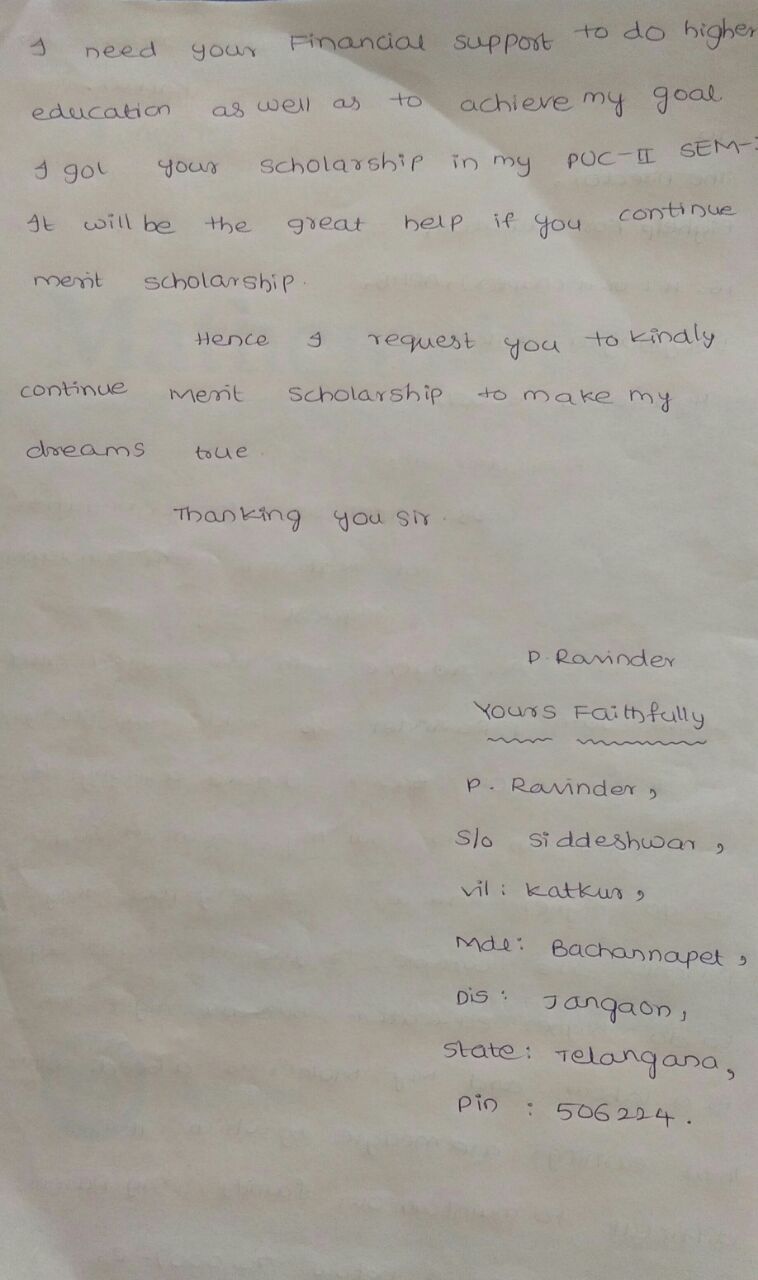 I need your Financial support to do higher
education as well as to achieve my goal
I got your scholarship in my PUC-II SEM-
It will be the great help if you continue
merit scholarship.
Hence I request you to kindly
continue merit scholarship to make my
dreams true.
Thanking you sir.
P. Ravinder
Yours Faithfully
P. Ravinder,
S/o Siddeshwar,
vil : Katkur,
Mdl: Bachannapet,
Dis : Jangaon,
State: Telangana,
Pin : 506224.